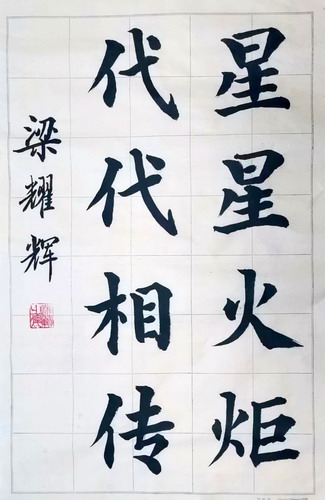 星星火炬
代代相传
梁耀辉